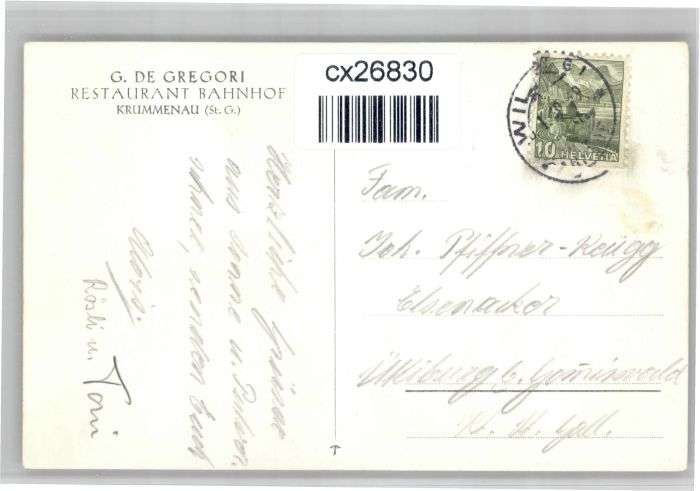 G. DE GREGORI
RESTAURANT BAHNHOF
KRUMMENAU (St. G.)
cx26830
WIL
10 HELVETIA
Herzliche Grüsse
aus Sonne u. Pulver-
schnee, senden Euch
Alois
Rösli u. Toni
Fam.
Joh. Pfiffner-Knügg
Elsenacker
b. Gommiswald
Kt. St. Gall.